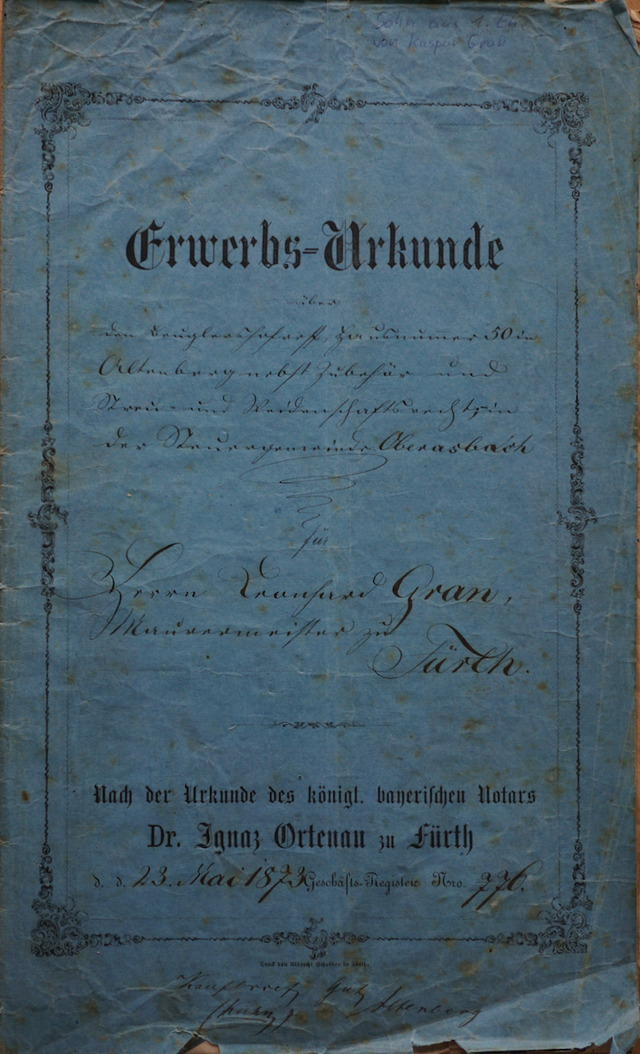 Sohn aus 1. Ehe
von Kaspar Gran
Erwerbs-Urkunde
über
Hausnummer 50 in
Altenberg nebst Zubehör und
Streu- und Weidenschaftsrecht in
der Steuergemeinde Oberasbach
für
Herrn Leonhard Gran,
Maurermeister zu
Fürth.
Nach der Urkunde des königl. bayerischen Notars
Dr. Ignaz Ortenau zu Fürth
d. d. 23. Mai 1873 Geschäfts-Register Nro. 776.
Kaufbrief Gut
Altenberg